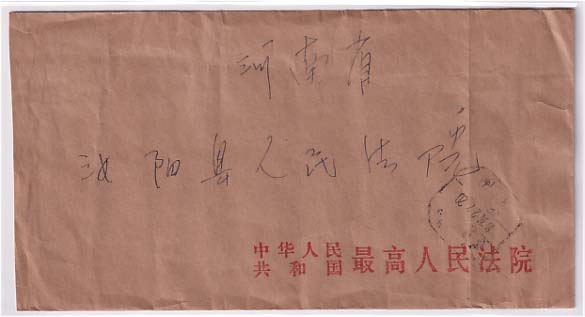 河南省
汝阳县人民法院
中华人民
共和国 最高人民法院